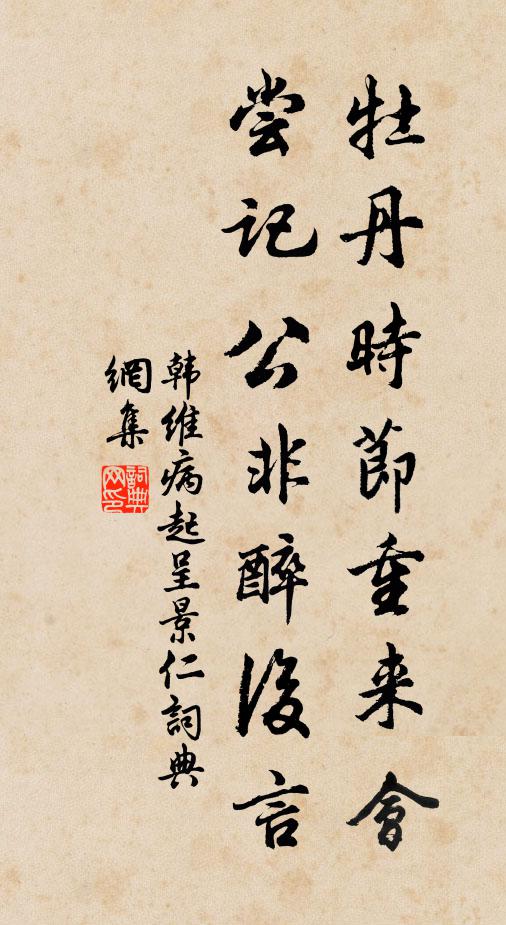 牡丹時節重来會
尝記公非醉後言
韩維病起呈景仁詞典
網集
詞典
网印